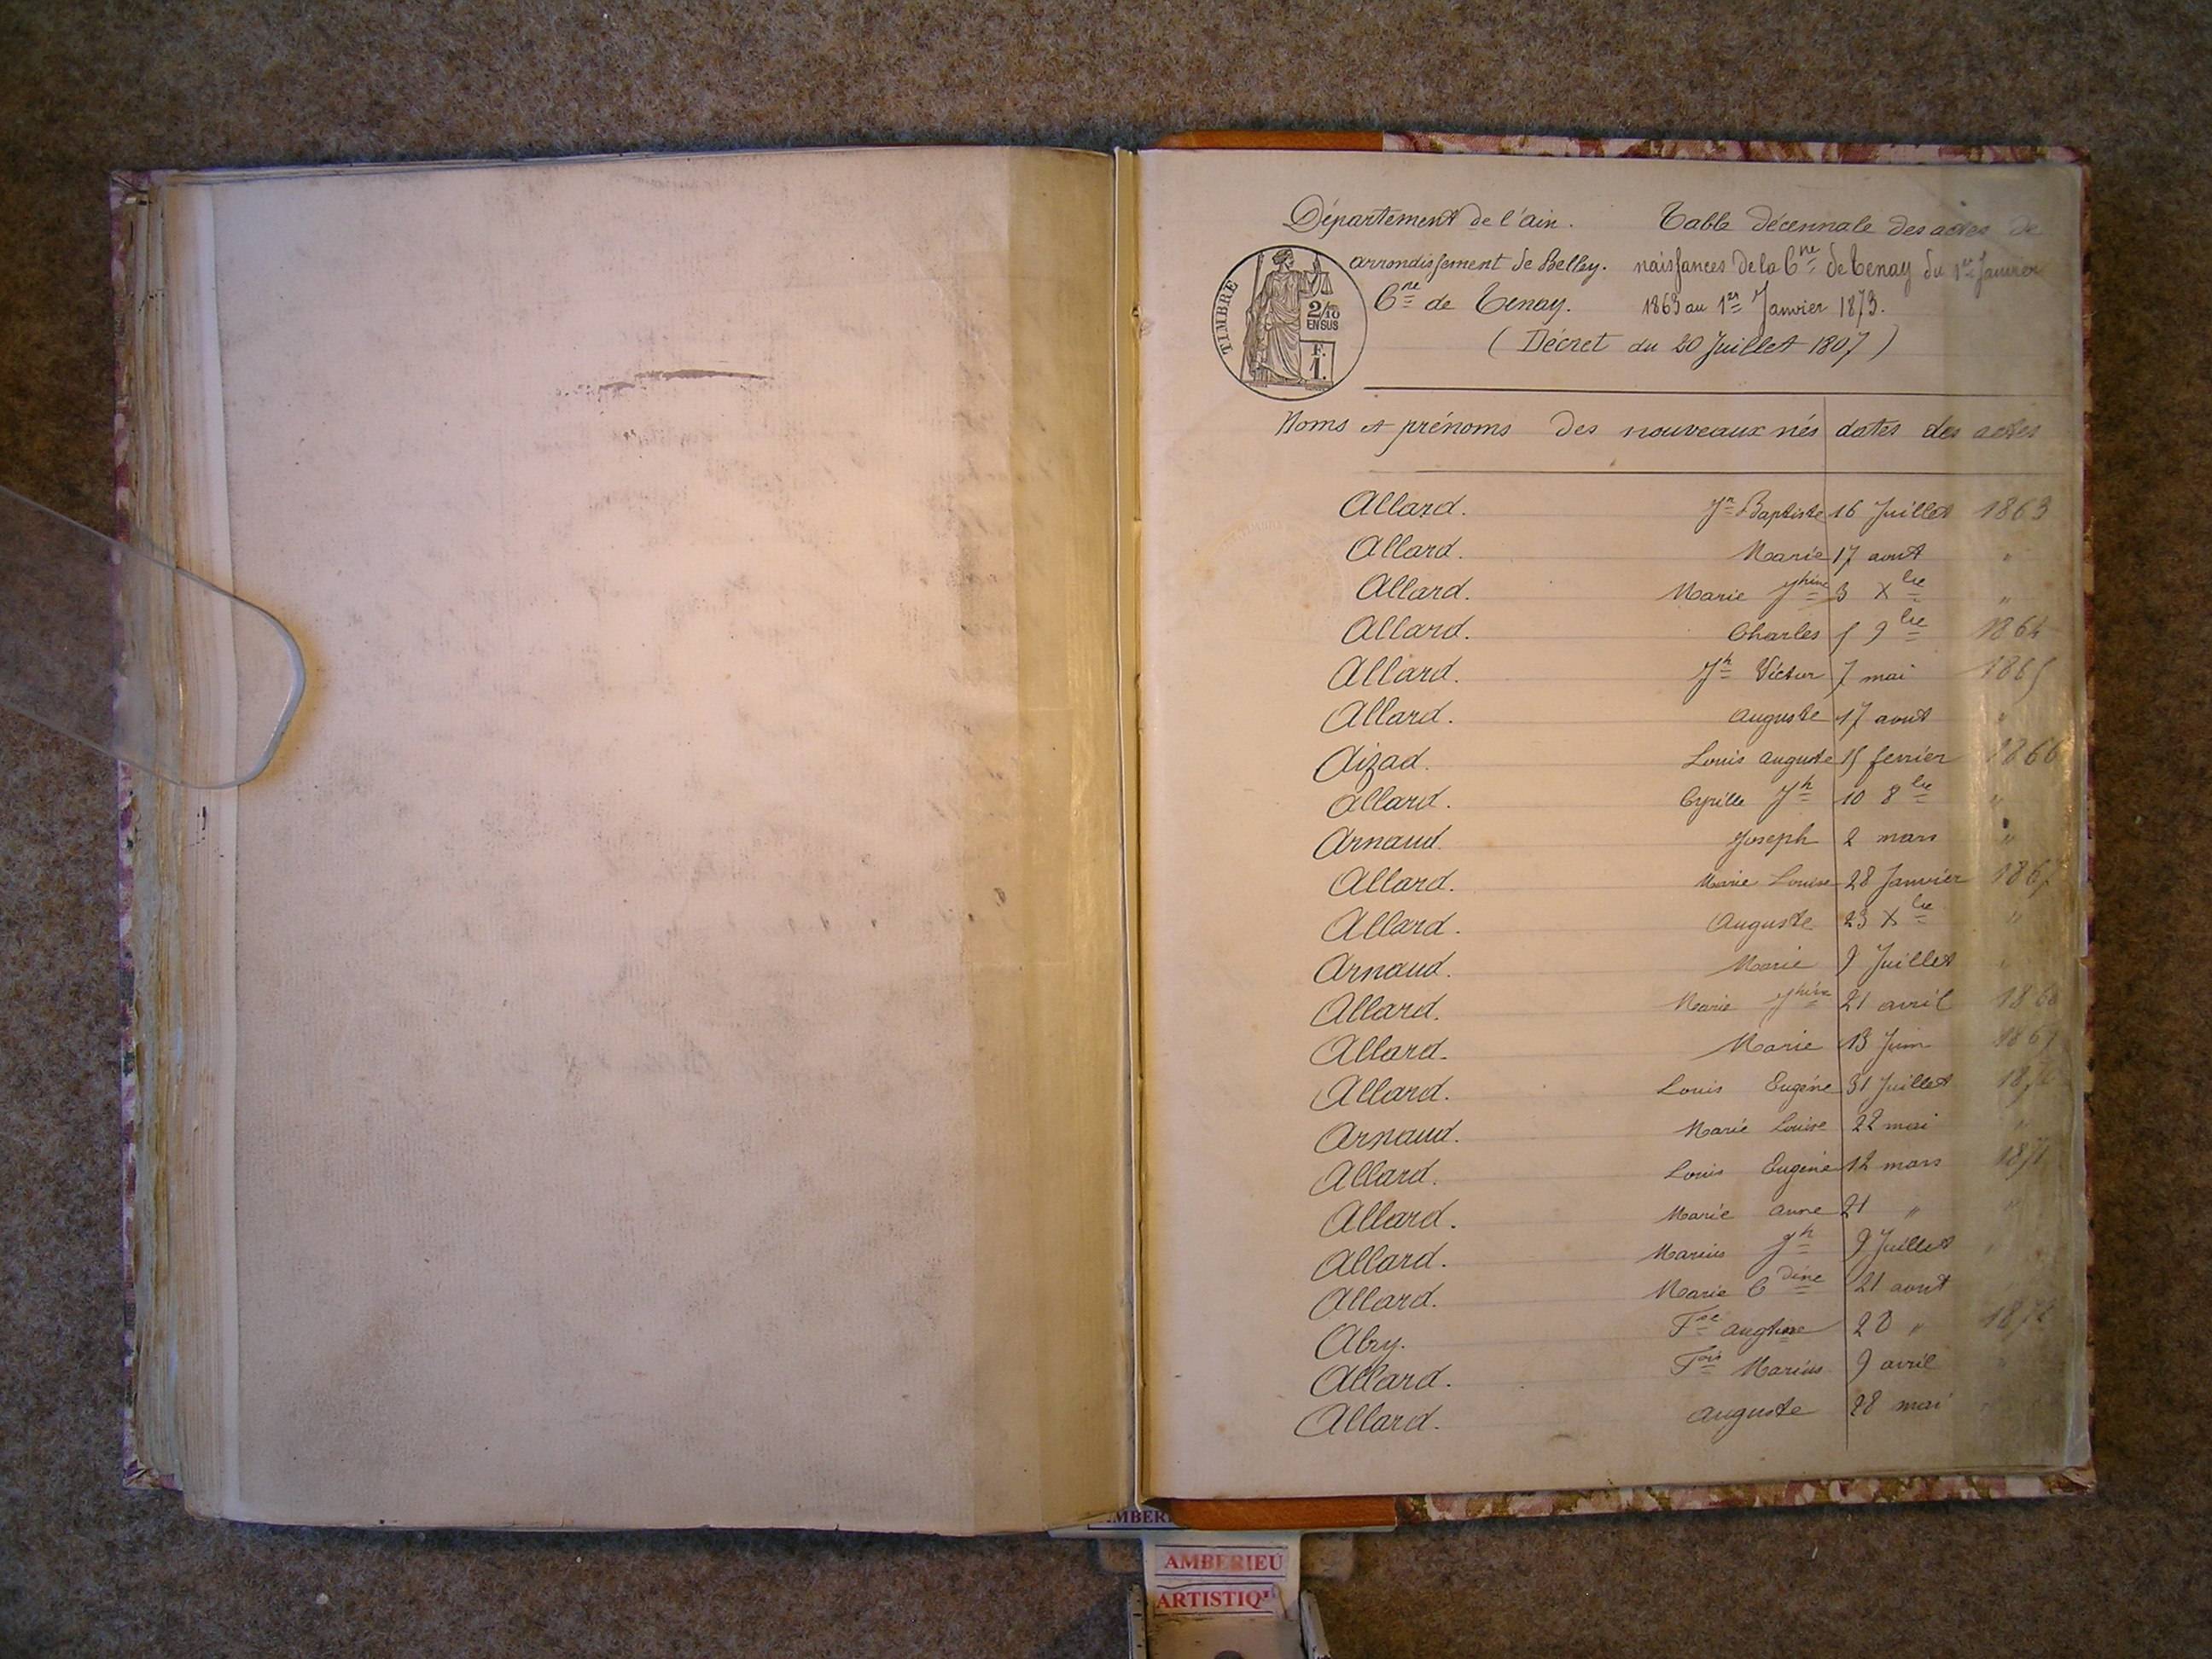 Département de l'ain.
Table décennale des actes de
arrondissement de Belley.
naissances de la Cne de Tenay du 1er Janvier
Cne de Tenay.
1863 au 1er Janvier 1873.
(Décret du 20 Juillet 1807)
TIMBRE
2/10
EN SUS
F.
1.
Noms et prénoms des nouveaux nés dates des actes
Allard. Jn Baptiste 16 Juillet 1863
Allard. Marie 17 aout "
Allard. Marie Jphine 3 Xbre "
Allard. Charles 5 9bre 1864
Allard. Jh Victor 7 mai 1865
Allard. auguste 17 aout "
Aizad. Louis auguste 15 fevrier 1866
allard. Cyrille Jh 10 8bre "
Arnaud. Joseph 2 mars "
Allard. Marie Louise 28 Janvier 1867
Allard. Auguste 23 Xbre "
Arnaud. Marie 9 Juillet "
Allard. Marie Jphine 21 avril 1868
Allard. Marie 13 Juin 1869
Allard. Louis Eugéne 31 Juillet 1870
Arnaud. Marie Louise 22 mai "
Allard. Louis Eugéne 12 mars 1871
Allard. Marie anne 21 " "
Allard. Marius Jh 9 Juillet "
Allard. Marie Cdine 21 aout
Abry. Fse augtine 28 " 1872
Allard. Fois Marius 9 avril "
Allard. auguste 28 mai
AMBERIEU
ARTISTIQ